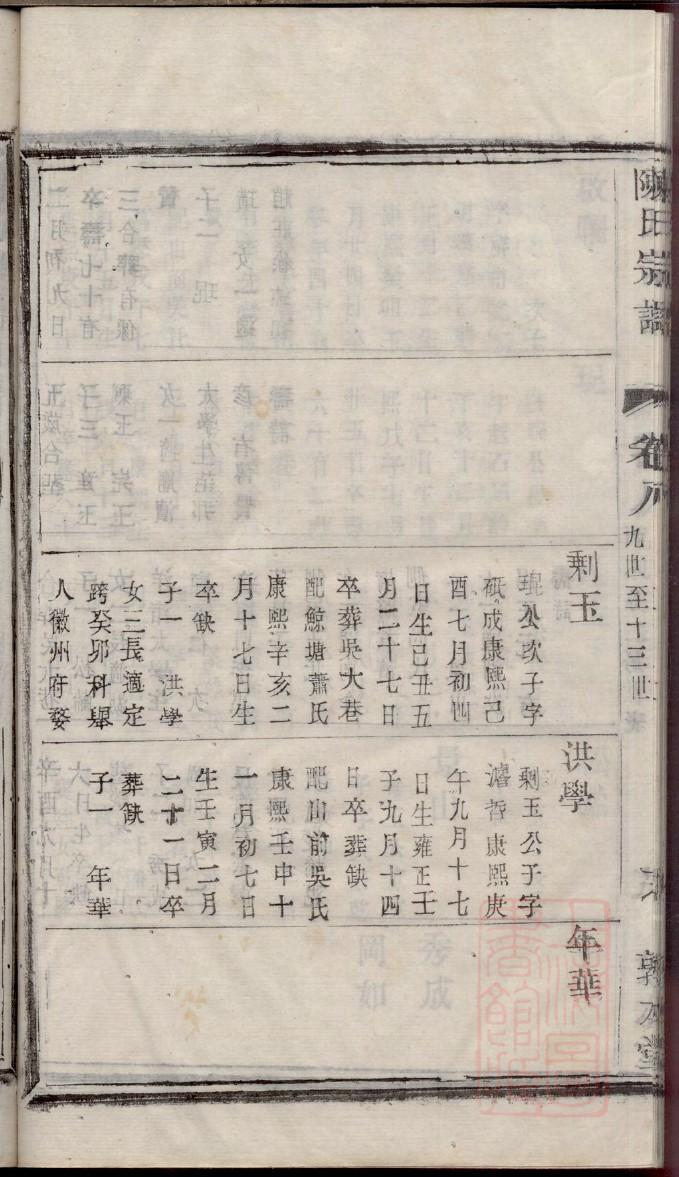 陳氏宗譜
卷八
九世至十三世
敦
堂
剩玉
琨公次子字
砥成康熙己
酉七月初四
日生己丑五
月二十七日
卒葬吳大巷
配鯨塘蕭氏
康熙辛亥二
月十七日生
卒缺
子一 洪學
女三長適定
跨癸卯科舉
人徽州府婺
洪學
剩玉公子字
濬哲康熙庚
午九月十七
日生雍正壬
子九月十四
日卒葬缺
配山前吳氏
康熙壬申十
一月初七日
生壬寅二月
二十一日卒
葬缺
子一 年華
年華